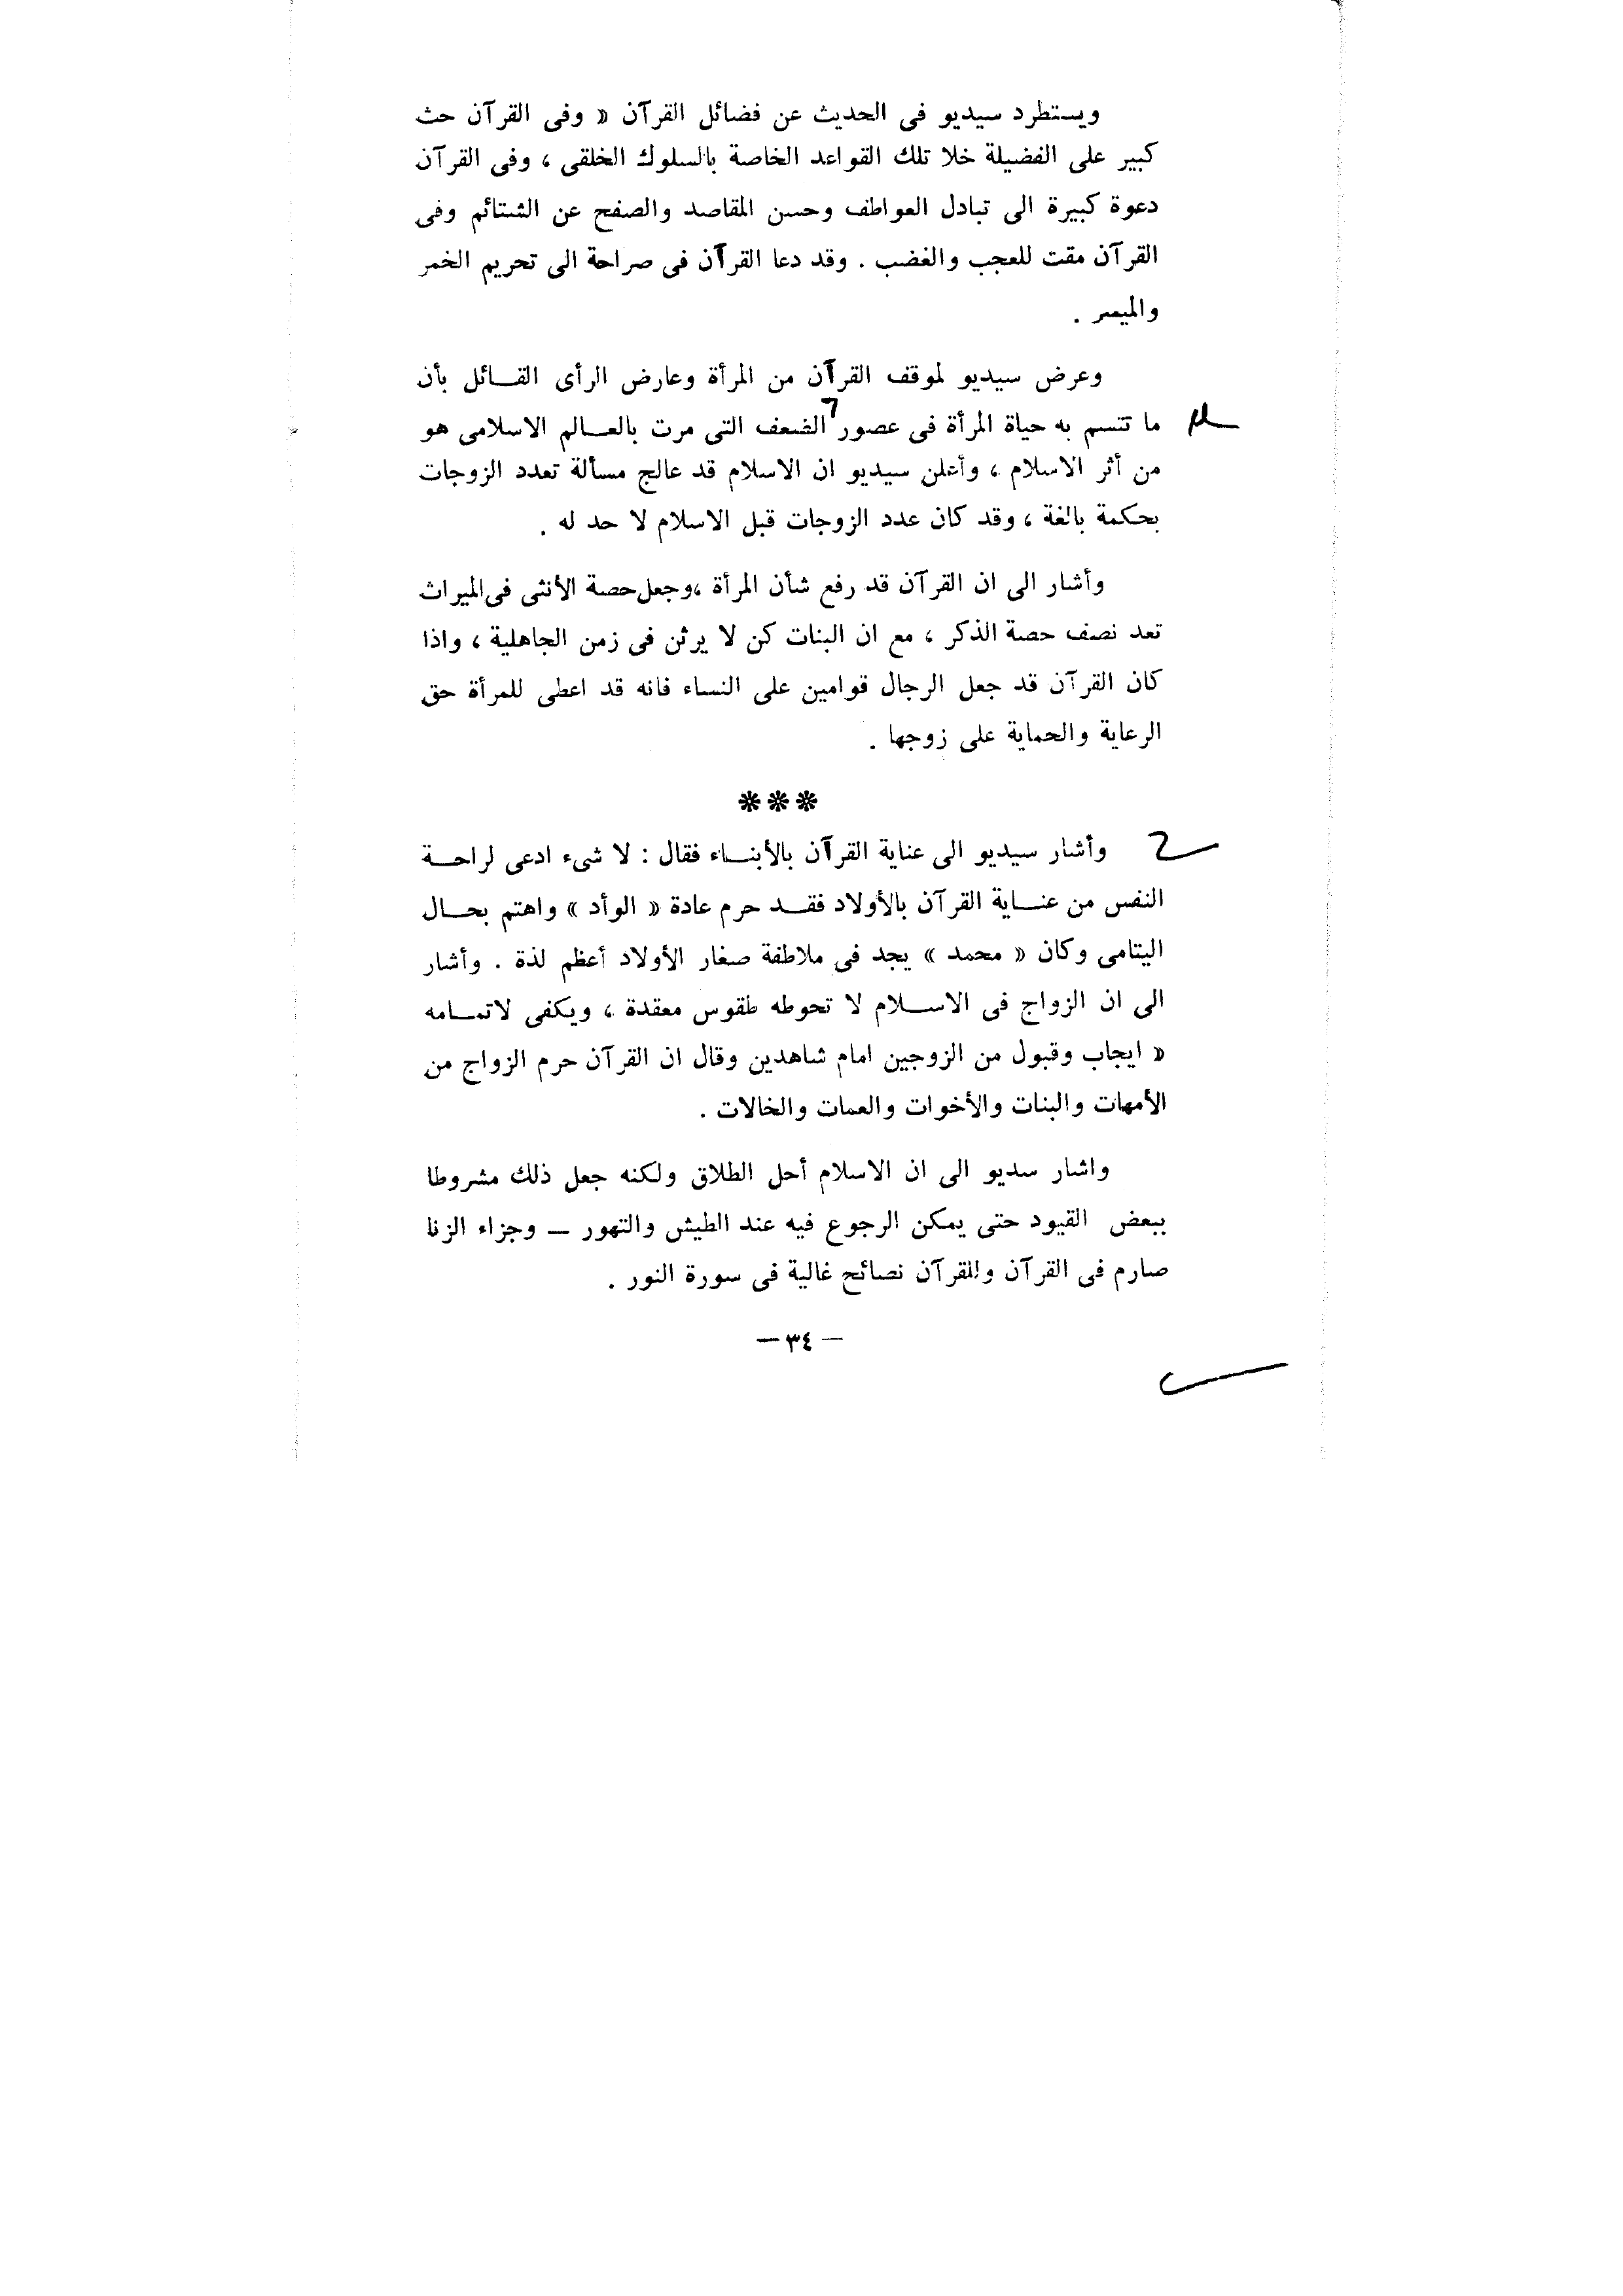 ويستطرد سيديو فى الحديث عن فضائل القرآن « وفى القرآن حث
كبير على الفضيلة خلا تلك القواعد الخاصة بالسلوك الخلقى ، وفى القرآن
دعوة كبيرة الى تبادل العواطف وحسن المقاصد والصفح عن الشتائم وفى
القرآن مقت للعجب والغضب . وقد دعا القرآن فى صراحة الى تحريم الخمر
والميسر .
وعرض سيديو لموقف القرآن من المرأة وعارض الرأى القائل بأن
ما تتسم به حياة المرأة فى عصور الضعف التى مرت بالعالم الاسلامى هو
من أثر الاسلام ، وأعلن سيديو ان الاسلام قد عالج مسألة تعدد الزوجات
بحكمة بالغة ، وقد كان عدد الزوجات قبل الاسلام لا حد له .
وأشار الى ان القرآن قد رفع شأن المرأة ،وجعل حصة الأنثى فى الميراث
تعد نصف حصة الذكر ، مع ان البنات كن لا يرثن فى زمن الجاهلية ، واذا
كان القرآن قد جعل الرجال قوامين على النساء فانه قد اعطى للمرأة حق
الرعاية والحماية على زوجها .
***
وأشار سيديو الى عناية القرآن بالأبناء فقال : لا شىء ادعى لراحة
النفس من عناية القرآن بالأولاد فقد حرم عادة « الوأد » واهتم بحال
اليتامى وكان « محمد » يجد فى ملاطفة صغار الأولاد أعظم لذة . وأشار
الى ان الزواج فى الاسلام لا تحوطه طقوس معقدة ، ويكفى لاتمامه
« ايجاب وقبول من الزوجين امام شاهدين وقال ان القرآن حرم الزواج من
الأمهات والبنات والأخوات والعمات والخالات .
واشار سديو الى ان الاسلام أحل الطلاق ولكنه جعل ذلك مشروطا
ببعض القيود حتى يمكن الرجوع فيه عند الطيش والتهور — وجزاء الزنا
صارم فى القرآن وللقرآن نصائح غالية فى سورة النور .
— ٣٤ —